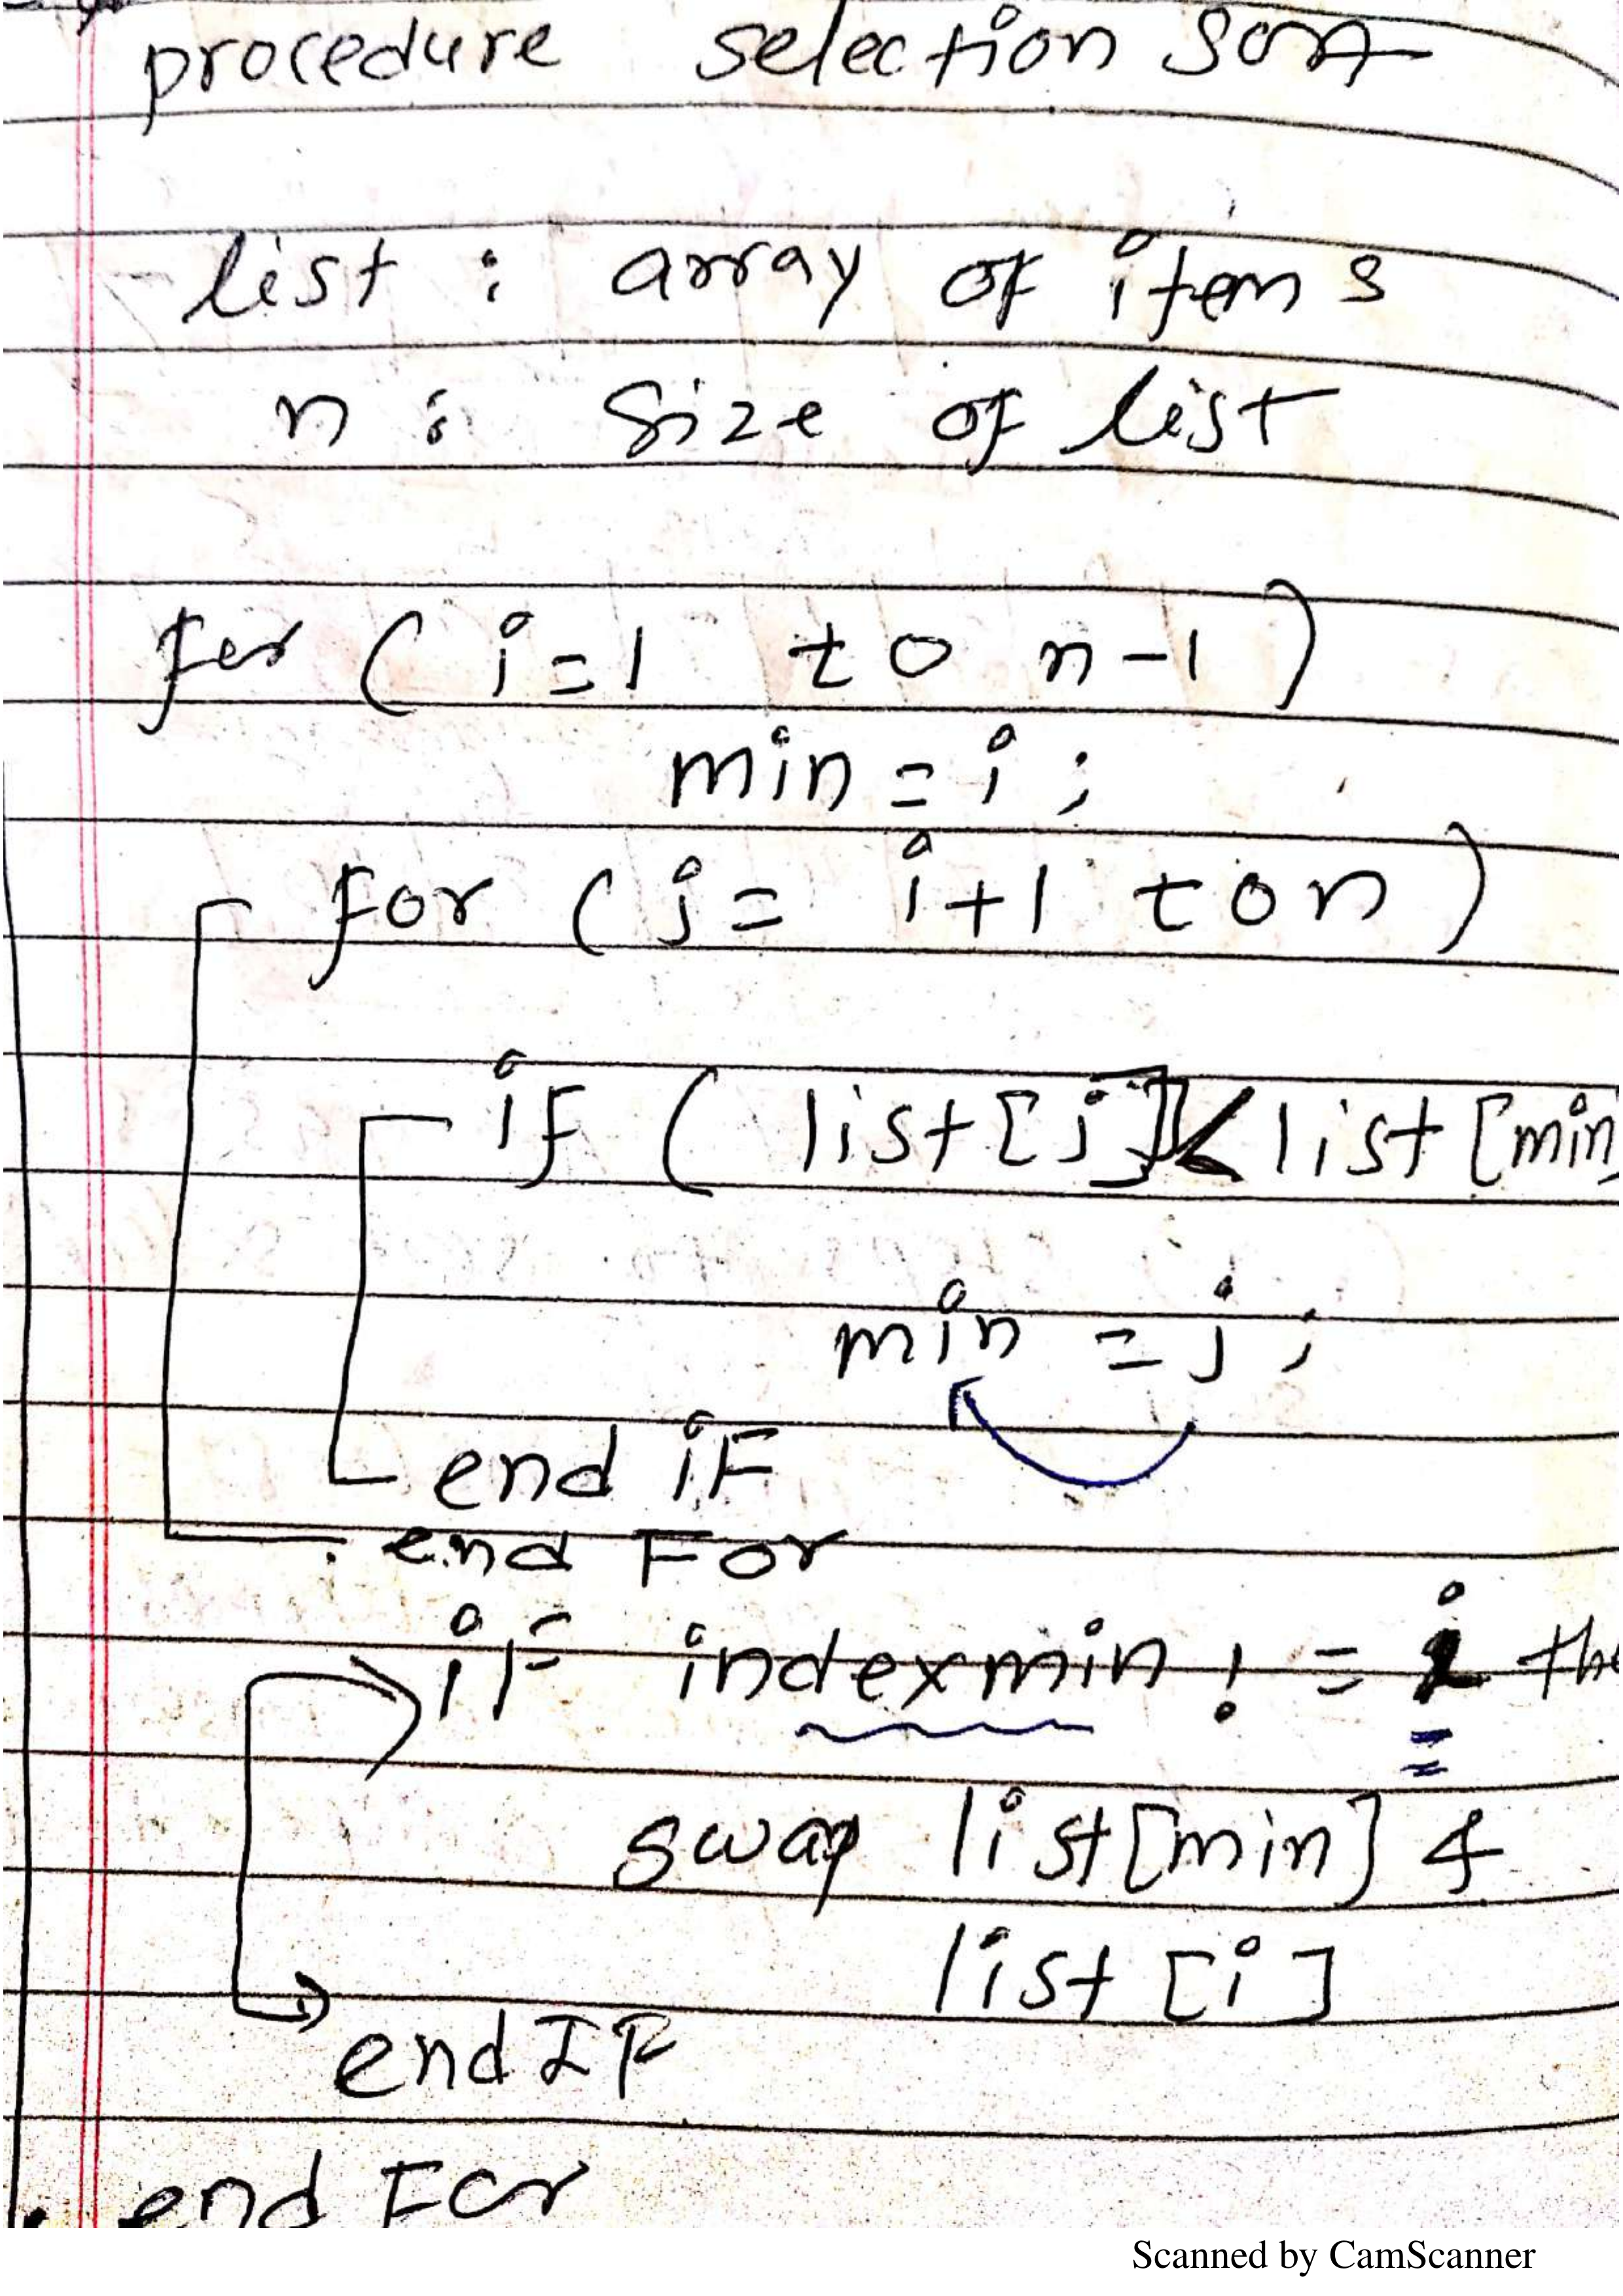 procedure selection sort
list : array of items
n : size of list
for ( i=1 to n-1 )
min = i ;
for ( j= i+1 to n )
if ( list[j] < list [min]
min = j ;
end if
end For
if indexmin != i the
swap list[min] &
list [i]
end IF
end For
Scanned by CamScanner